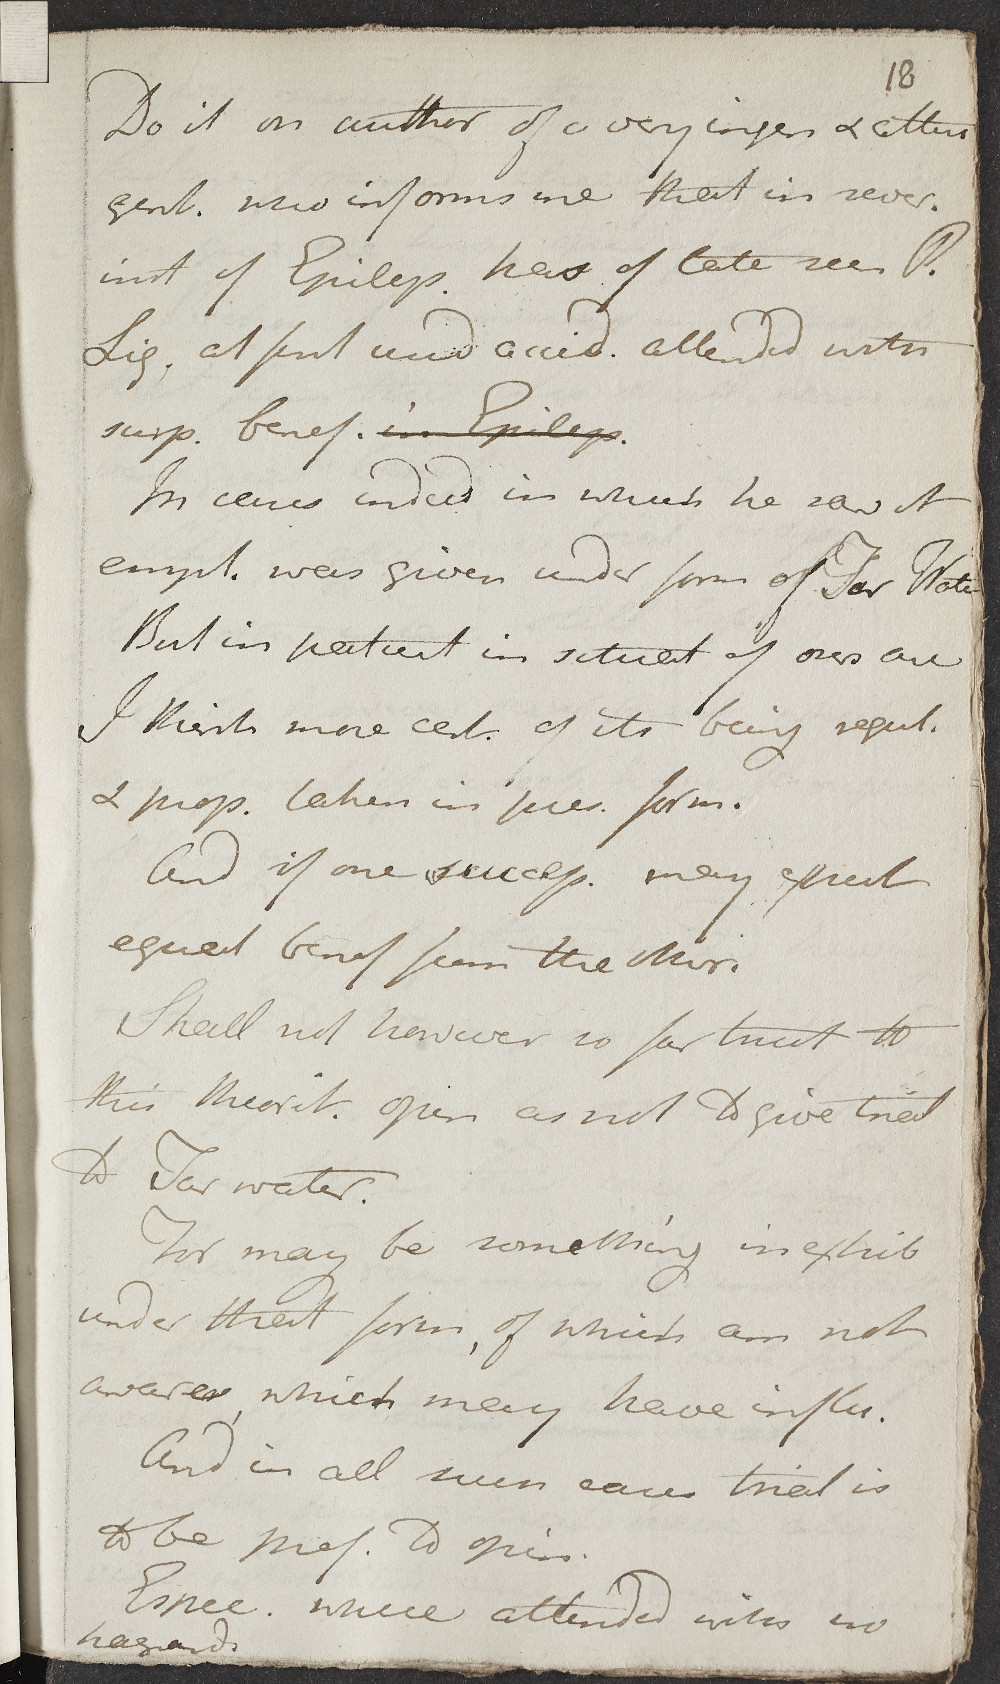 18
Do it on author of a very ingen & atten
gent. who informs me that in sever.
inst of Epilep. has of late seen P.
Lig, at first und accid. attended with
surp. benef. in Epilep.
In cases indeed in which he saw it
empl. was given under form of Tar Water
But in patient in situat of ours are
I think more cert. of its being regul.
& prop. taken in pres. form.
And if one succesp. may expect
equal benef from the other.
Shall not however so far trust to
this theorit. opin as not to give trial
to Tar water.
For may be something in exhib
under that form, of which am not
aware, which may have influ.
And in all such cases trial is
to be pref. to opin.
Espec. where attended with no
hazard.